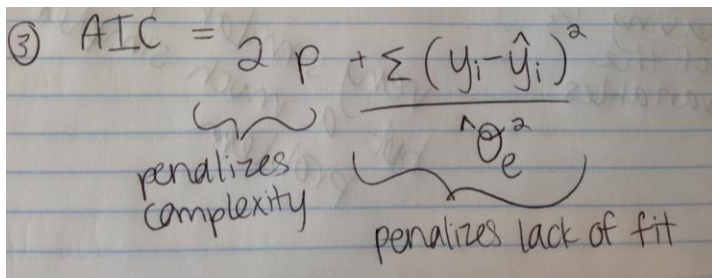 ③ AIC = 2p + Σ(yᵢ-ŷᵢ)²
θ̂ₑ²
penalizes
complexity
penalizes lack of fit